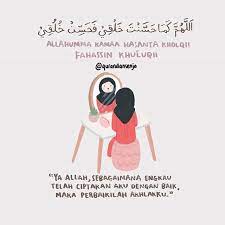 اَللّٰهُمَّ كَمَا حَسَّنْتَ خَلْقِيْ فَحَسِّنْ خُلُقِيْ
ALLAHUMMA KAMAA HASANTA KHOLQII
FAHASSIN KHULUQII
"YA ALLAH, SEBAGAIMANA ENGKAU
TELAH CIPTAKAN AKU DENGAN BAIK,
MAKA PERBAIKILAH AKHLAKKU."